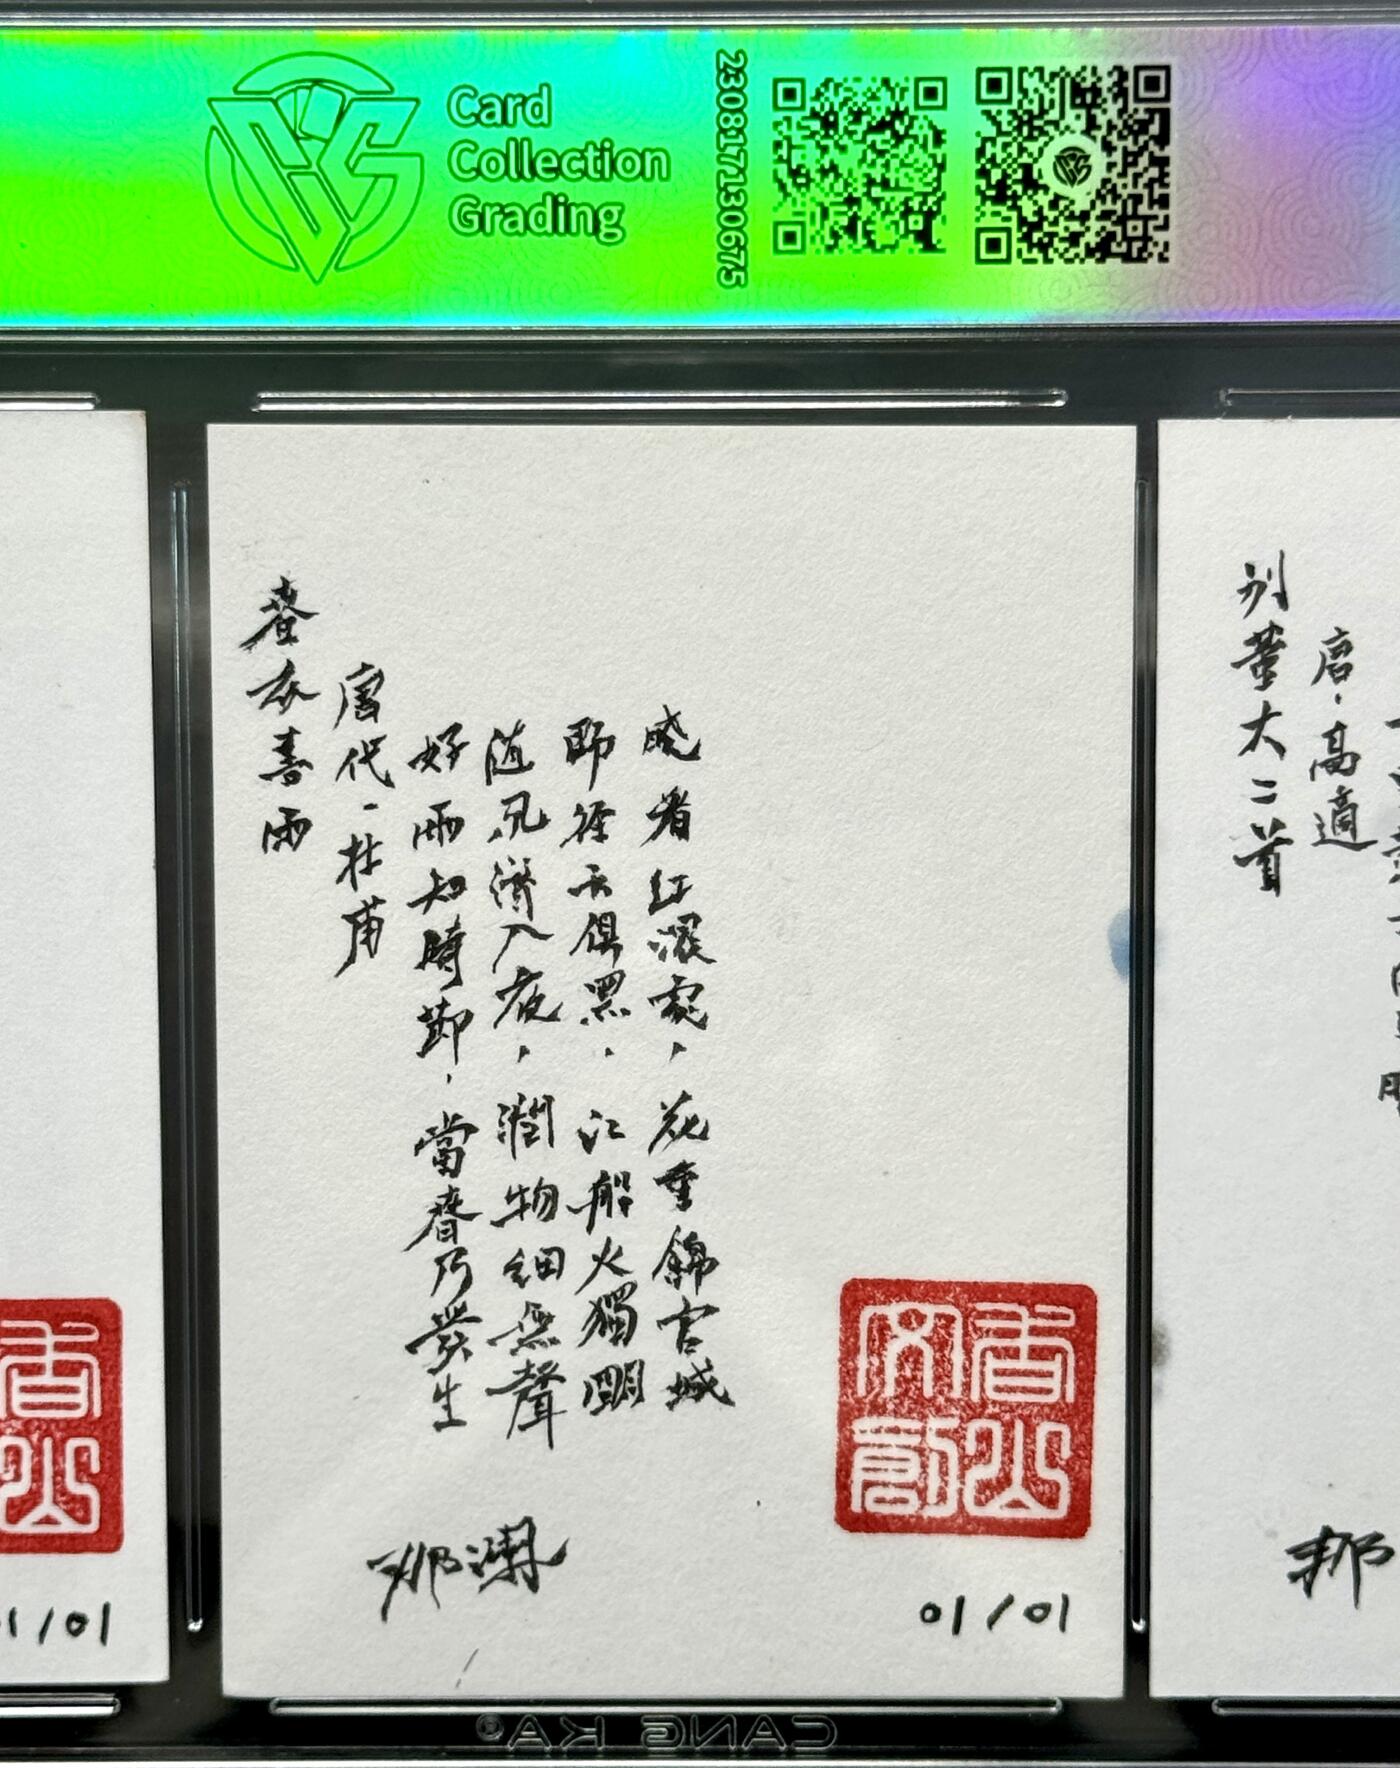 Card
Collection
Grading
230817130675
春夜喜雨
唐代·杜甫
好雨知時節,當春乃發生
随风潛入夜,潤物细無聲
野径云俱黑,江船火獨明
晓看红濕處,花重錦官城
香山文創
01/01
香山
1/01
别董大二首
唐·高適
CANG KA®